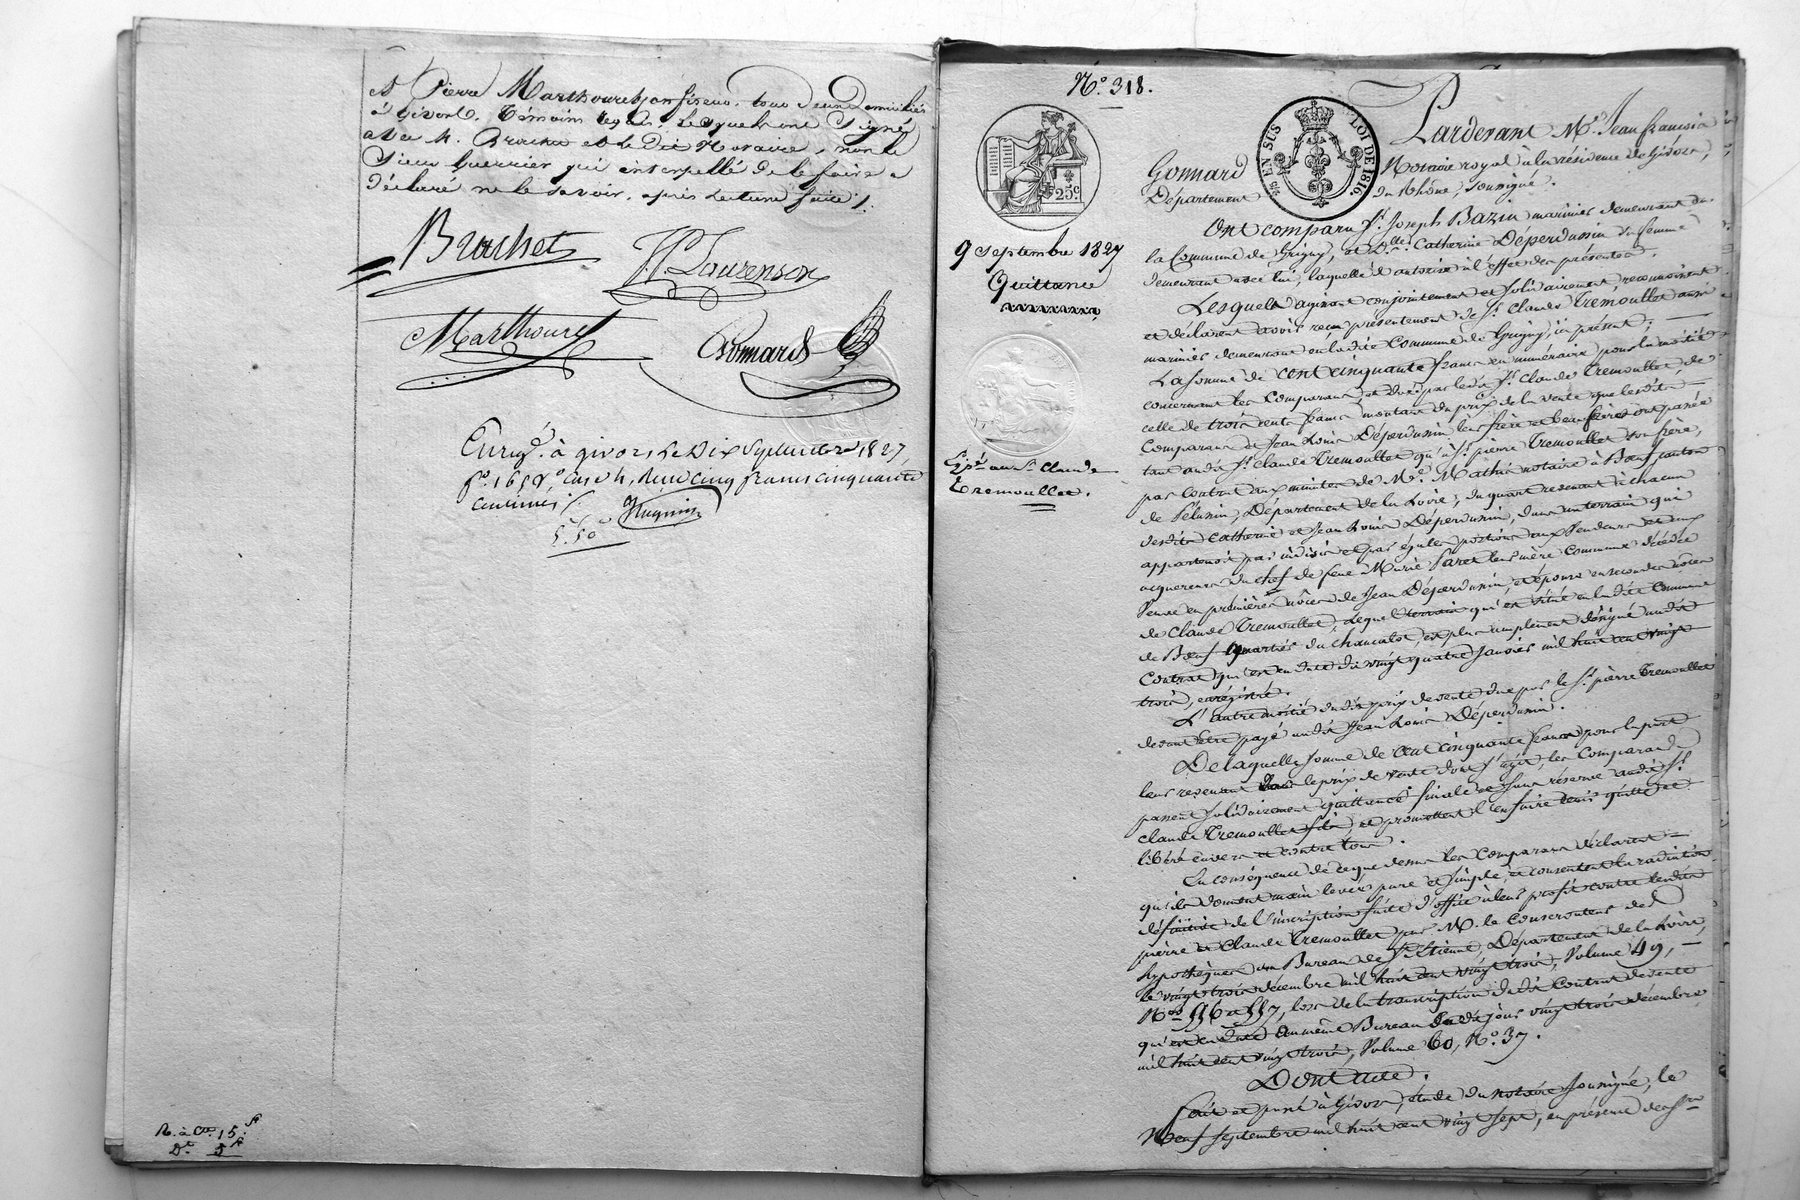 et Pierre Marthouret, confiseur, tous deux Domiciliés
à Givors, Témoins legaux, Lesquels ont Signé
avec M. Brochet et le Dit Notaire, non le
Sieur Guerrier qui interpellé de le faire a
déclaré ne le savoir, après Lecture faite /.
Brochet
Laurenson
Marthouret
Gonnard
Enregé. à givors le Dix Septembre 1827
fo. 165 Vo, case 4, Reçu cinq francs cinquante
centimes /.
5f. 50c
Hugnin
R. à Ce. 15.f
Dt. 5f
No. 318.
25c.
EN SUS
LOI DE 1816.
9 Septembre 1827
Quittance
Expé. au Sr. Claude
Tremouillet.
Pardevant Me. Jean François
Gonnard Notaire royal à la résidence de Givors,
Département du Rhône, soussigné.
Ont comparu Sr. Joseph Bazin marinier demeurant en
la Commune de Grigny, et De. Catherine Déperdussin sa femme
demeurant avec lui, laquelle il autorise à l'effet des présentes.
Lesquels agissant conjointement et solidairement reconnoissent
et déclarent avoir reçu présentement de Sr. Claude Tremouillet aussi
marinier demeurant en la dite Commune de Grigny, ici présent;
La somme de cent cinquante francs en numéraire pour la moitié
concernant les Comparans et due par le dit Sr. Claude Tremouillet, de
celle de trois cents francs montant du prix de la vente que les dits
Comparans et Jean Louis Déperdussin leur frère et beau frère ont passée
tant au dit Sr. Claude Tremouillet qu'à Sr. pierre Tremouillet son frère,
par Contrat aux minutes de Me. Mathié notaire à Bœuf canton
de Pélussin, Département de la Loire; du quart revenant à chacun
desdits Catherine et Jean Louis Déperdussin, dans un terrain qui
appartenoit par indivis et par égales portions aux Vendeurs et aux
acquereurs du chef de feue Marie Paret leur mère commune décédée
Veuve en premières nôces de Jean Déperdussin, et épouse en secondes nôces
de Claude Tremouillet, lequel terrain qui est situé en la dite Commune
de Bœuf quartier du chancelot, est plus amplement désigné au dit
Contrat qui est en date du vingt quatre Janvier mil huit cent vingt
trois, enregistré.
L'autre moitié du dit prix de vente due par le Sr. pierre Tremouillet
devant être payé au dit Jean Louis Déperdussin.
De laquelle somme de Cent cinquante francs pour la part
leur revenant dans le prix de vente dont s'agit, les Comparans
passent solidairement quittance finale et sans réserve au dit Sr.
Claude Tremouillet fils, et promettent l'en faire tenir quitte et
libéré envers et contre tous.
En conséquence de ce que dessus les Comparans déclarent
qu'ils donnent main levée pure et simple et consentent la radiation
définitive de l'inscription faite d'office à leur profit contre lesdits
pierre et Claude Tremouillet par M. le Conservateur des
hypothèques au Bureau de St. Etienne, Département de la Loire,
le vingt trois décembre mil huit cent vingt trois, Volume 49,
Nos. 556 et 557, lors de la transcription du dit Contrat de vente
qui est en date au même Bureau du dit jour vingt trois décembre
mil huit cent vingt trois, Volume 60, No. 37.
Dont acte.
Fait et passé à Givors, étude du notaire soussigné, le
Neuf septembre mil huit cent vingt sept, en présence des Srs.